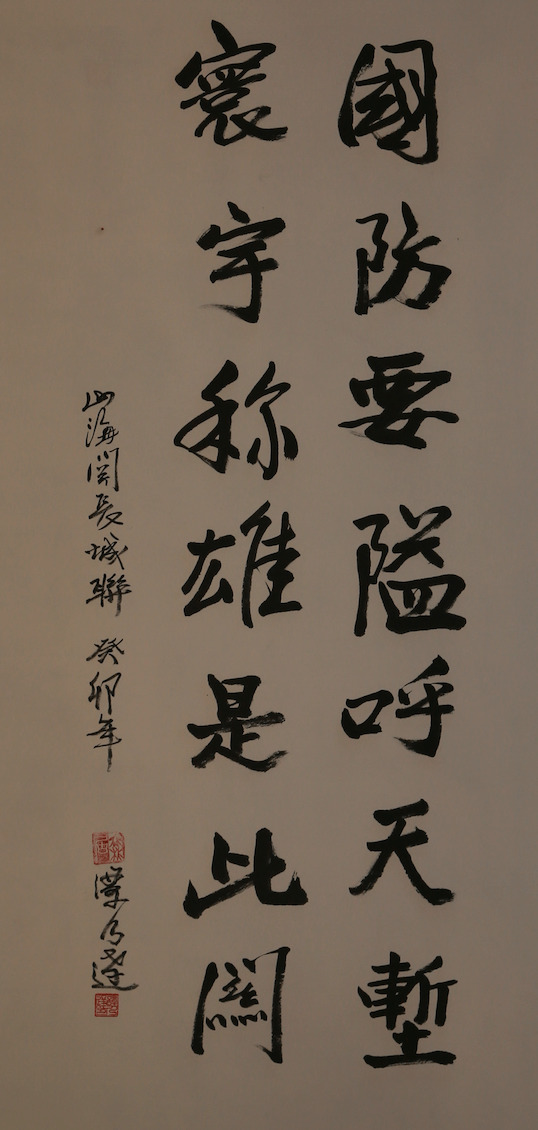 國防要隘呼天塹
寰宇称雄是此關
山海関長城聯 癸卯年